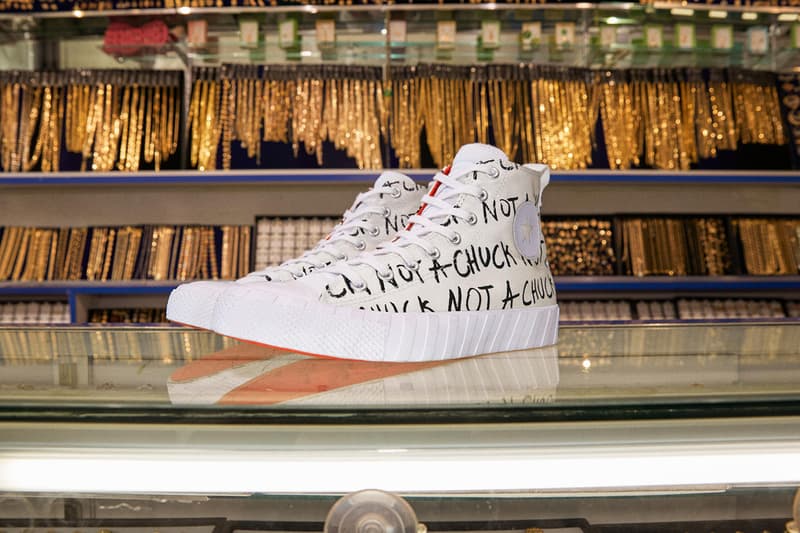 NOT
NOT A CHUCK NOT
CHUCK NOT A CHUCK